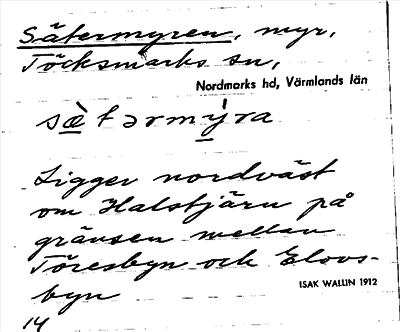 Sätermyren, myr,
Töcksmarks sn,
Nordmarks hd, Värmlands län
sæ̀tərmýra
Ligger nordväst
om Halstjärn på
gränsen mellan
Töresbyn och Elovs-
byn
ISAK WALLIN 1912
14